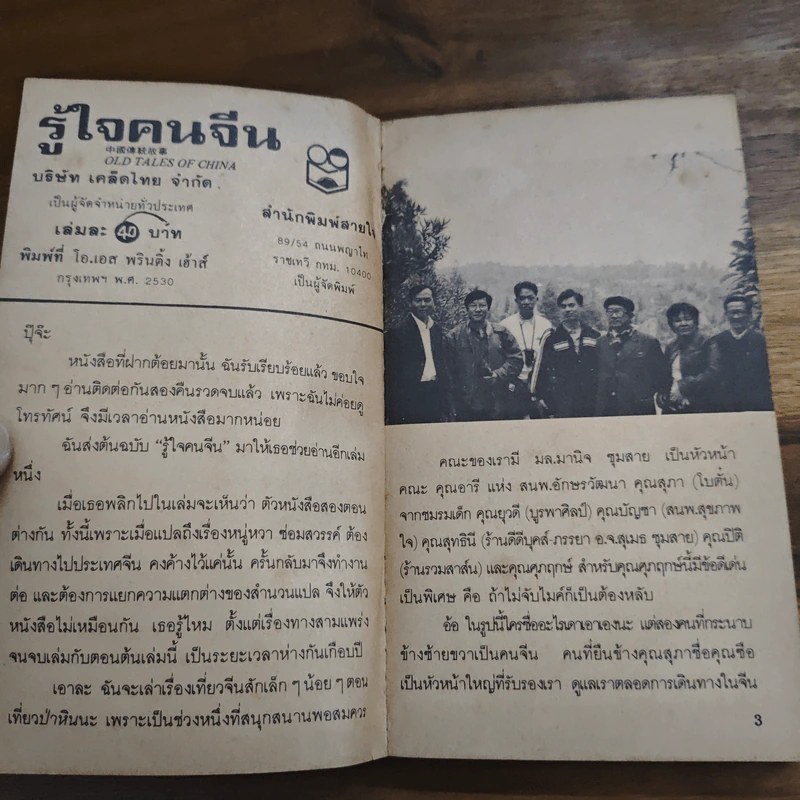 รู้ใจคนจีน
中國傳統故事
OLD TALES OF CHINA
บริษัท เคล็ดไทย จำกัด
เป็นผู้จัดจำหน่ายทั่วประเทศ
เล่มละ 40 บาท
พิมพ์ที่ โอ.เอส พรินติ้ง เฮ้าส์
กรุงเทพฯ พ.ศ. 2530
สำนักพิมพ์สายใจ
89/54 ถนนพญาไท
ราชเทวี กทม. 10400
เป็นผู้จัดพิมพ์
ปุ๊จ๊ะ
หนังสือที่ฝากต้อยมานั้น ฉันรับเรียบร้อยแล้ว ขอบใจ
มาก ๆ อ่านติดต่อกันสองคืนรวดจบแล้ว เพราะฉันไม่ค่อยดู
โทรทัศน์ จึงมีเวลาอ่านหนังสือมากหน่อย
ฉันส่งต้นฉบับ “รู้ใจคนจีน” มาให้เธอช่วยอ่านอีกเล่ม
หนึ่ง
เมื่อเธอพลิกไปในเล่มจะเห็นว่า ตัวหนังสือสองตอน
ต่างกัน ทั้งนี้เพราะเมื่อแปลถึงเรื่องหนู่หวา ซ่อมสวรรค์ ต้อง
เดินทางไปประเทศจีน คงค้างไว้แค่นั้น ครั้นกลับมาจึงทำงาน
ต่อ และต้องการแยกความแตกต่างของสำนวนแปล จึงให้ตัว
หนังสือไม่เหมือนกัน เธอรู้ไหม ตั้งแต่เรื่องทางสามแพร่ง
จนจบเล่มกับตอนต้นเล่มนี้ เป็นระยะเวลาห่างกันเกือบปี
เอาละ ฉันจะเล่าเรื่องเที่ยวจีนสักเล็ก ๆ น้อย ๆ ตอน
เที่ยวป่าหินนะ เพราะเป็นช่วงหนึ่งที่สนุกสนานพอสมควร
คณะของเรามี มล.มานิจ ชุมสาย เป็นหัวหน้า
คณะ คุณอารี แห่ง สนพ.อักษรวัฒนา คุณสุภา (โบตั๋น)
จากชมรมเด็ก คุณยุวดี (บูรพาศิลป์) คุณบัญชา (สนพ.สุขภาพ
ใจ) คุณสุทธินี (ร้านดีดีบุคส์-ภรรยา อ.จ.สุเมธ ชุมสาย) คุณปิติ
(ร้านรวมสาส์น) และคุณศุภฤกษ์ สำหรับคุณศุภฤกษ์นี้มีข้อดีเด่น
เป็นพิเศษ คือ ถ้าไม่จับไมค์ก็เป็นต้องหลับ
อ้อ ในรูปนี้ใครชื่ออะไรเดาเอาเองนะ แต่สองคนที่กระนาบ
ข้างซ้ายขวาเป็นคนจีน คนที่ยืนข้างคุณสุภาชื่อคุณซือ
เป็นหัวหน้าใหญ่ที่รับรองเรา ดูแลเราตลอดการเดินทางในจีน
3